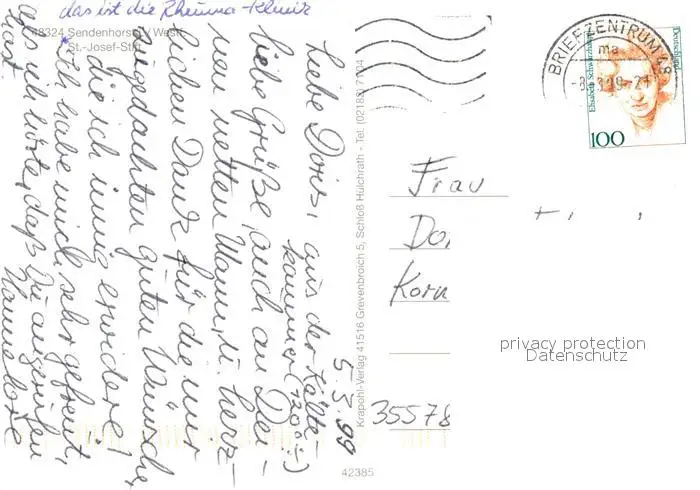 das ist die Rheuma-Klinik
48324 Sendenhorst / Westf.
St.-Josef-Stift
5.3.99
Liebe Doris, aus der Kälte-
kammer (-120°C)
liebe Grüße, auch an Dei-
nen netten Mann, u. herz-
lichen Dank für die mir
zugedachten guten Wünsche,
die ich innig erwidere!
Ich habe mich sehr gefreut,
als ich hörte, daß Du angerufen
hast. Hannelore
Krapohl-Verlag 41516 Grevenbroich 5, Schloß Hülchrath - Tel. (02182)
42385
BRIEFZENTRUM 48
ma
Elisabeth Schwarzhaupt
Deutschland
100
Frau
Do
Korn
35578
privacy protection
Datenschutz